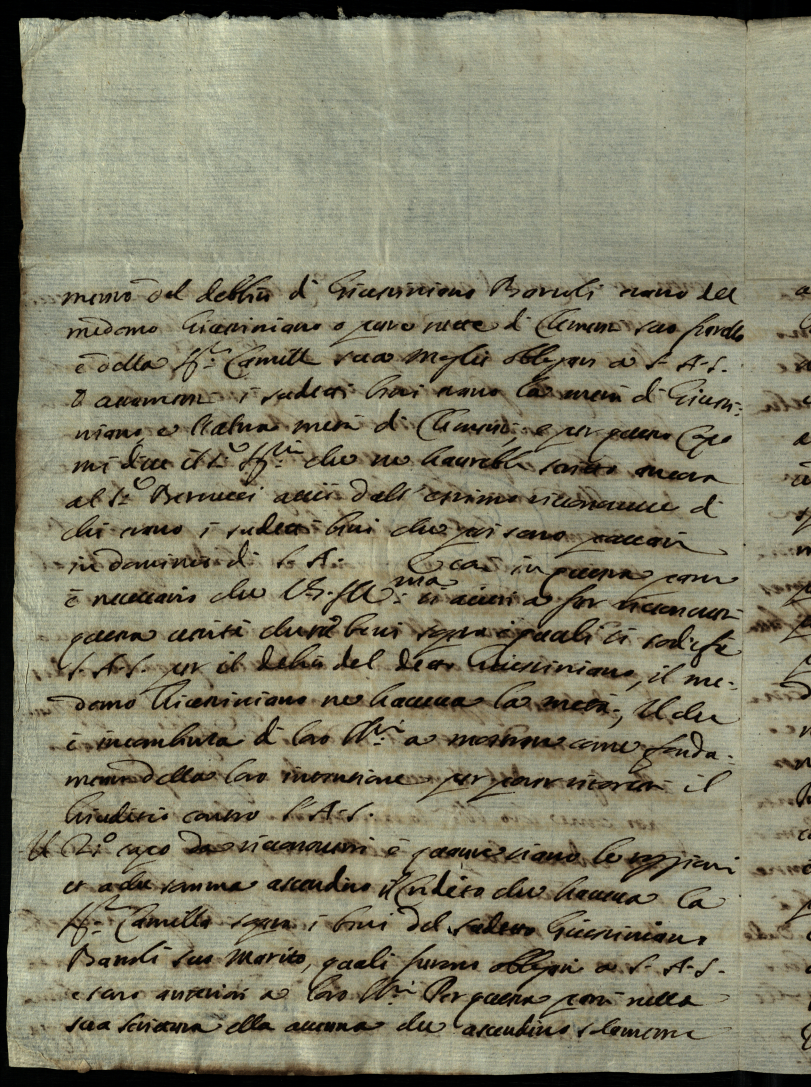 mento del debbito di Giustiniano Baruoli siano del
medemo Giustiniano o pure mette di Clemente suo fratello
e della Sig.ra Camilla sua Moglie obbligati a S. A. S.
i sudetti beni siano la metà di Giusti-
niano, e l'altra metà di Clemente, e per questo Capo
mi dice il S.r che ne haurebbe scritto ancora
al S.r Berucci acciò dall' estimo riconoscesse di
chi siano i sudetti beni che poi sono passati
in dominio di S. A. in questa parte
è necessario che V. S. Ill.ma si accerti a far riconoscere
questa verità che de beni sopra i quali si sodisfa
S. A. S. per il debito del detto Giustiniano, il me-
demo Giustiniano ne haueua la metà, il che
è incombenza di loro SS.ri a mostrare come fonda-
mento della loro intentione per poter uicerci il
Giuditio contro S. A. S.
Il 2.o capo da riconoscersi è quanto siano le ragioni
et a che somma ascendino il Credito che haueua la
Sig.ra Camilla sopra i beni del sudetto Giustiniano
Baruoli suo Marito, quali furono obbligati a S. A. S.
e sono anteriori a loro SS.ri Per questa parte nella
sua scrittura ella accenna che ascendino solamente